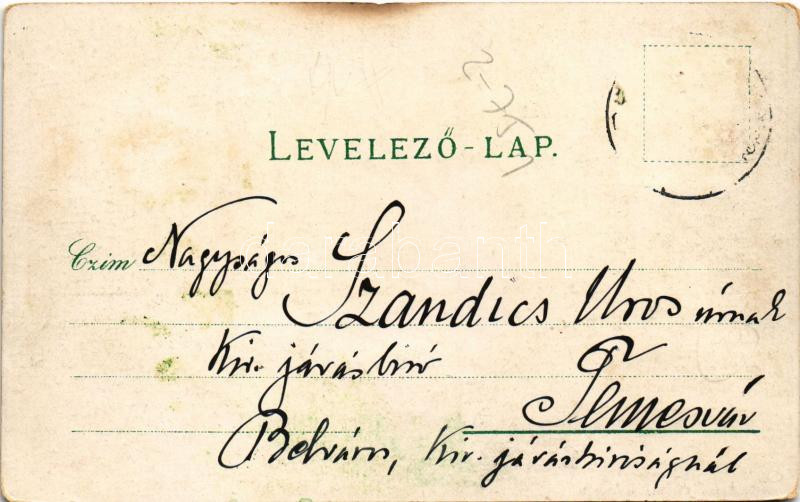 LEVELEZŐ-LAP.
Czim Nagyságos
Szandics Uros úrnak
Kir. járásbiró
Temesvár
Belváros, Kir. járásbiróságnál